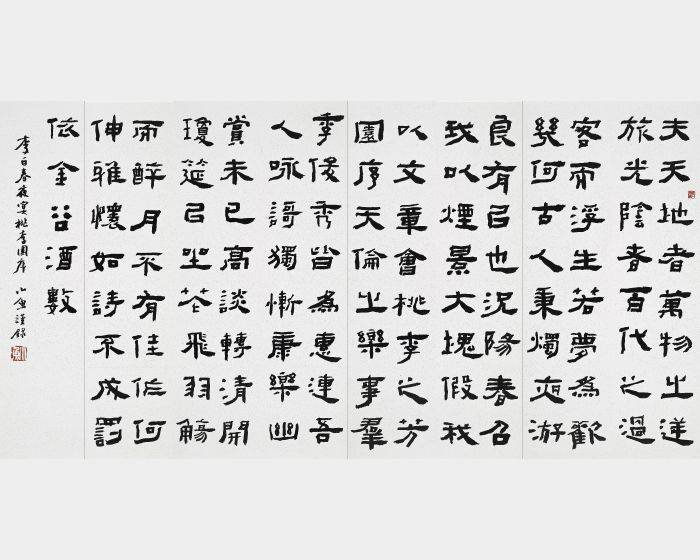 夫天地者萬物之逆
旅光陰者百代之過
客而浮生若夢為歡
幾何古人秉燭夜游
良有㠯也況陽春召
我以煙景大塊假我
以文章會桃李之芳
園序天倫之樂事羣
季俊秀皆為惠連吾
人咏謌獨慚康樂幽
賞未已高談轉清開
瓊筵㠯坐芲飛羽觴
而醉月不有佳作何
伸雅懷如詩不成罰
依金谷酒數
李白春夜宴桃李園序